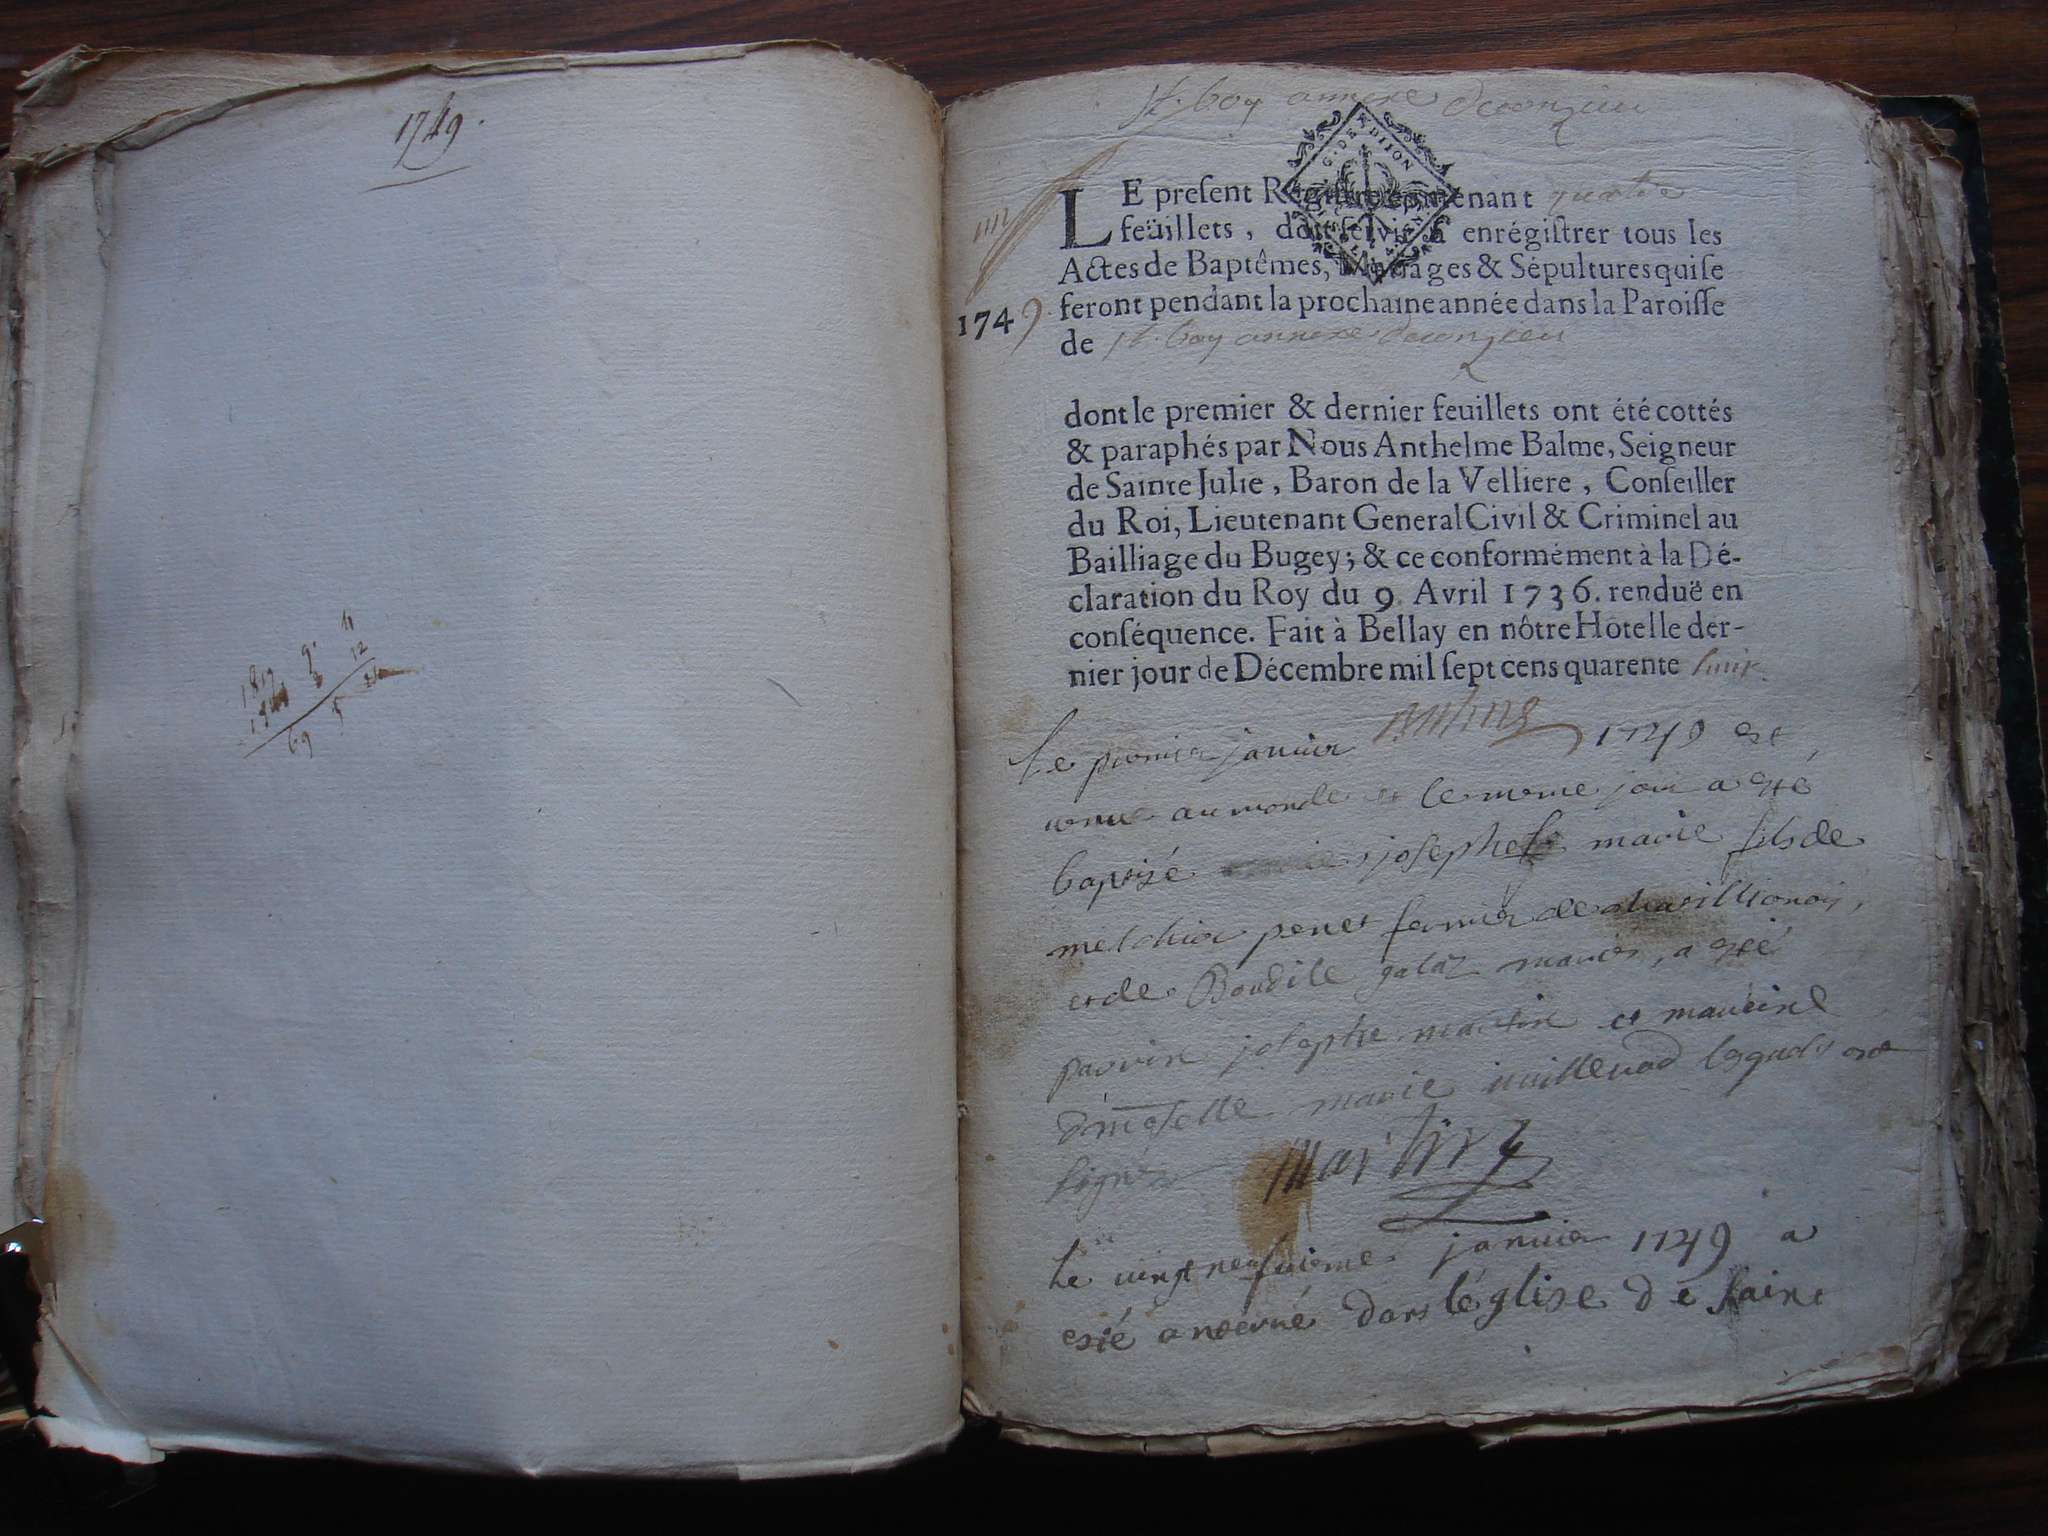 1749.
1817 9. 4
12
69 5
St. boy annexe deconzieu
G. DE DIJON
LE preſent Régiſtre contenant quatre
feüillets, doit ſervir à enrégiſtrer tous les
Actes de Baptêmes, Mariages & Sépultures qui ſe
feront pendant la prochaine année dans la Paroiſſe
1749.
de St. boy annexe deconzieu
dont le premier & dernier feuillets ont été cottés
& paraphés par Nous Anthelme Balme, Seigneur
de Sainte Julie, Baron de la Velliere, Conſeiller
du Roi, Lieutenant General Civil & Criminel au
Bailliage du Bugey; & ce conformément à la Dé-
claration du Roy du 9. Avril 1736. renduë en
conſéquence. Fait à Bellay en nôtre Hôtel le der-
nier jour de Décembre mil ſept cens quarente huit.
Le premier janvier 1749 est
venu au monde et le meme jour a esté
baptizé joseph marie fils de
melchior penet fermier de
et de galaz mariés, a esté
parrin josephe martin et marrine
dmoselle marie lesquels ont
signé Martin
le vingt neufvieme janvier 1749 a
esté anterré dans léglise de saint